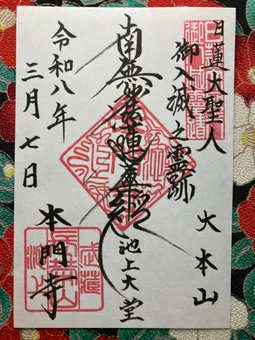 日蓮大聖人
御入滅之霊跡
大本山
南無妙法蓮華経
池上大堂
本門寺
令和八年
三月七日